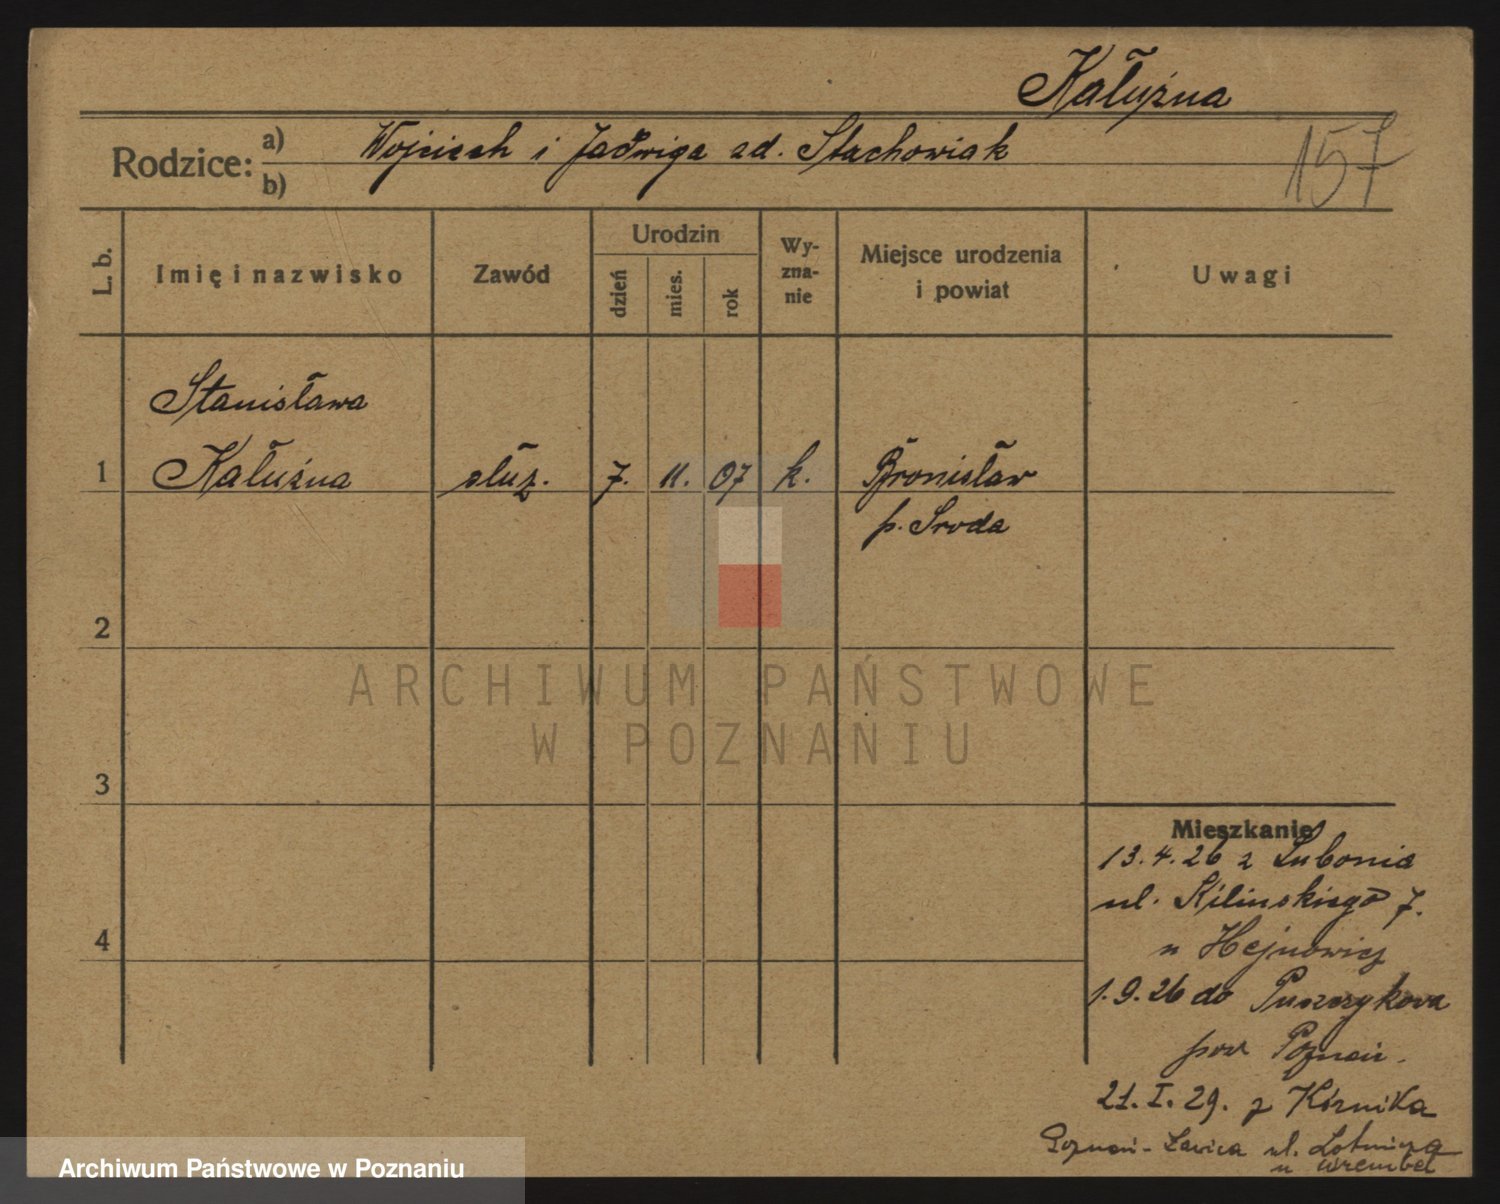 Kałużna
Rodzice: a) Wojciech i Jadwiga zd. Stachowiak
b)
157
L. b.
Imię i nazwisko
Zawód
Urodzin
dzień
mies.
rok
Wy-
zna-
nie
Miejsce urodzenia
i powiat
Uwagi
Stanisława
1 Kałużna służ. 7. 11. 07 k. Bronisław
p. Sroda
2
3
4
ARCHIWUM PAŃSTWOWE
W POZNANIU
Mieszkanie
13.4.26 z Lubonia
ul. Kilinskiego 7.
u Hejnowicz
1.9.26 do Puszczykova
pow Poznań.
21.I.29. z Kórnika
Poznań-Ławica ul. Lotnicza
u Wrembel
Archiwum Państwowe w Poznaniu